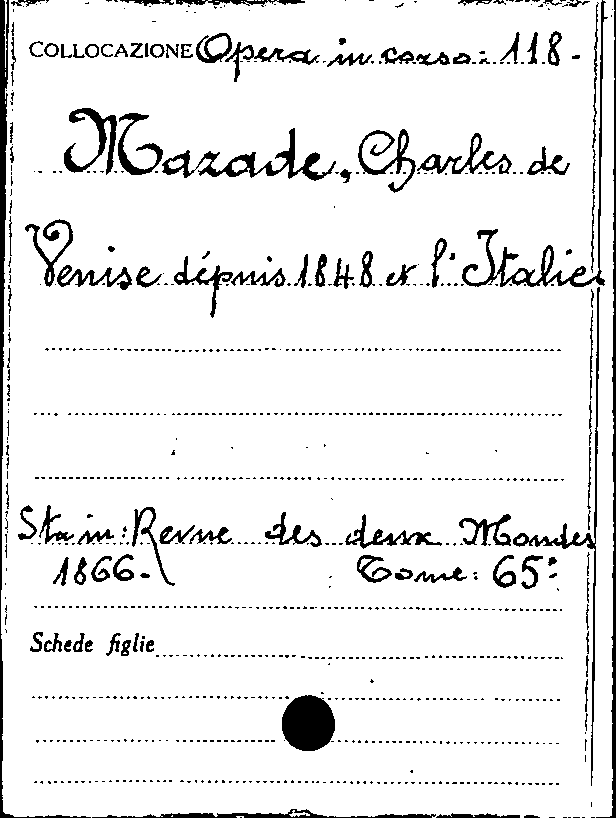 COLLOCAZIONE Opera in corso: 118.
Mazade, Charles de
Venise dépuis 1848 et l'Italie.
Sta in: Revue des deux Mondes
1866. Tome: 65º
Schede figlie